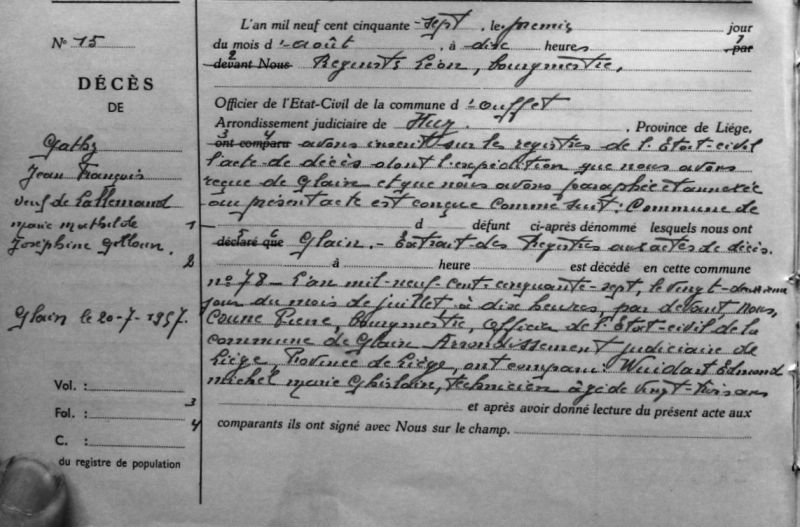 N° 15
DÉCÈS
DE
Gathy
Jean François
veuf de Lallemand
Marie Mathilde
Joséphine Ghilain.
1
2
Glain le 20-7-1957.
Vol. :
Fol. :
3
C. :
4
du registre de population
L'an mil neuf cent cinquante-sept, le premier jour
du mois d'août, à dix heures 1 par
2 devant Nous Regnarts Léon, bourgmestre,
Officier de l'Etat-Civil de la commune d'Ouffet
Arrondissement judiciaire de Huy, Province de Liége,
3 4 ont comparu avons inscrit sur les registres de l'Etat-civil
l'acte de décès dont l'expédition que nous avons
reçue de Glain et que nous avons paraphée et annexée
au présent acte est conçue comme suit: Commune de
d défunt ci-après dénommé lesquels nous ont
5 6 déclaré que Glain. - Extrait des Registres aux actes de décès.
à heure est décédé en cette commune
n° 78 - L'an mil-neuf-cent-cinquante-sept, le vingt-deuxième
jour du mois de juillet à dix heures, par devant, Nous,
Coune Pierre, bourgmestre, officier de l'Etat-civil de la
commune de Glain Arrondissement judiciaire de
Liège, Province de Liège, ont comparu: Wuidart Edmond
Michel Marie Ghislain, technicien âgé de vingt-trois ans
et après avoir donné lecture du présent acte aux
comparants ils ont signé avec Nous sur le champ.